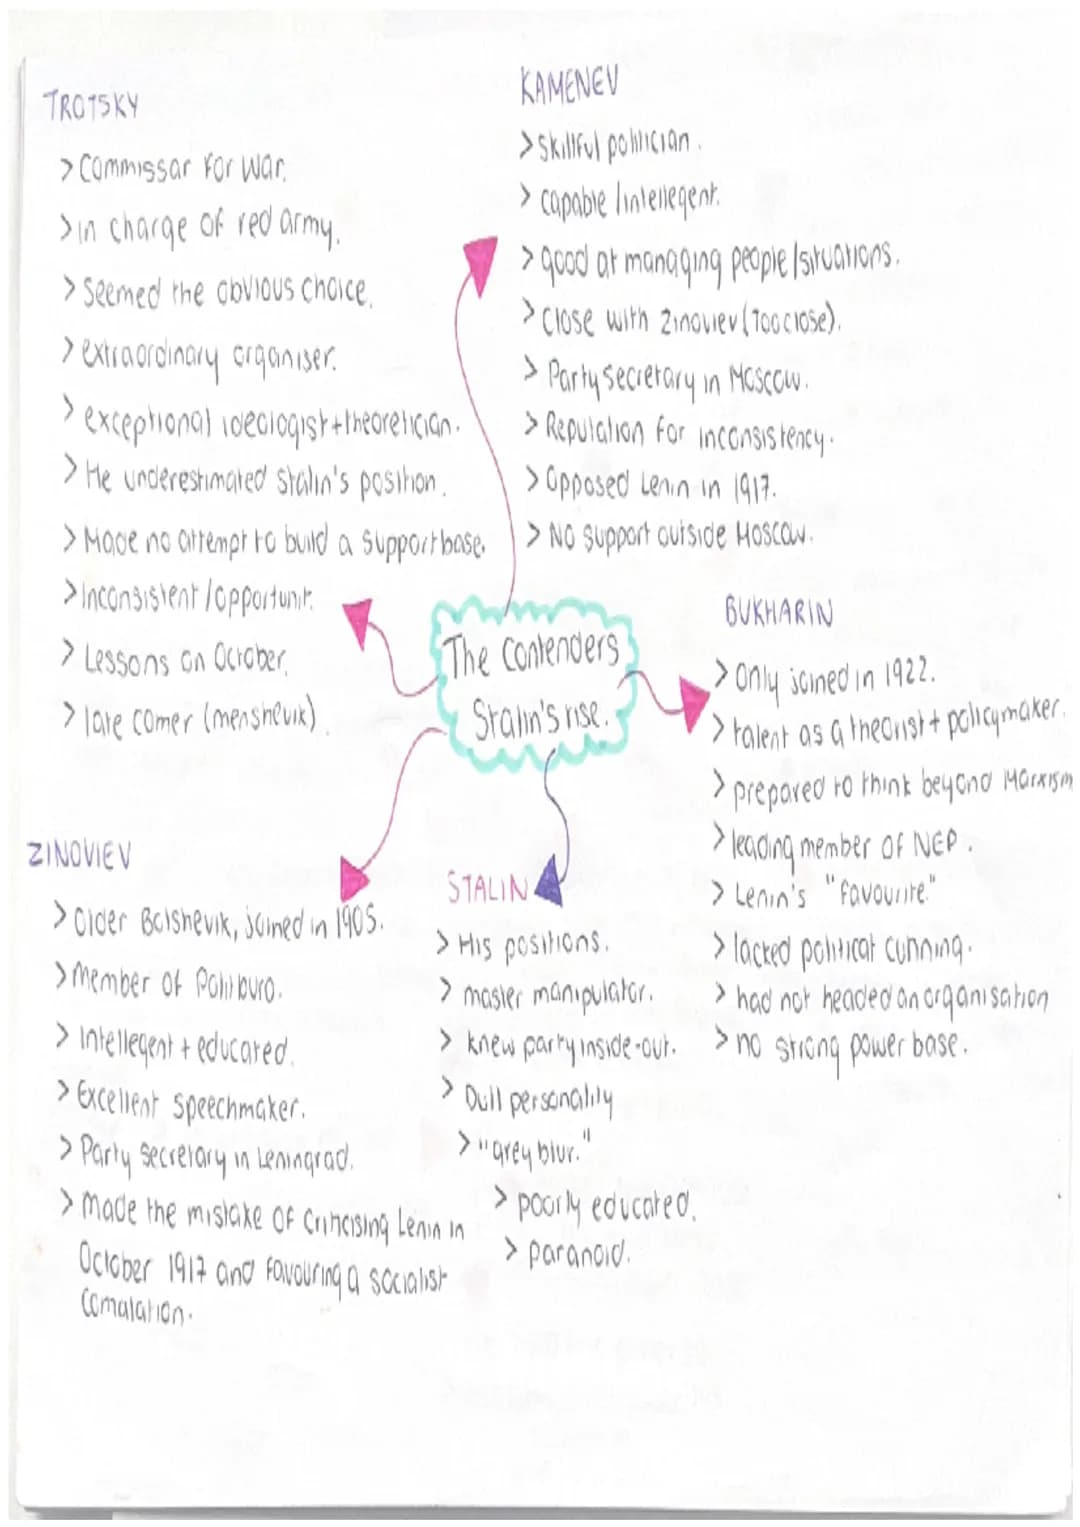 TROTSKY
> Commissar for War.
> in charge of red army.
> Seemed the obvious choice.
> extraordinary organiser.
> exceptional ideologist + theoretician.
> He underestimated Stalin's position.
> Made no attempt to build a support base.
> Inconsistent / opportunit.
> Lessons on October.
> late comer (menshevik)
KAMENEV
> Skillful politician.
> capable / intellegent.
> good at managing people / situations.
> Close with Zinoviev (Too close).
> Party Secretary in Moscow.
> Reputation for inconsistency.
> Opposed Lenin in 1917.
> No support outside Moscow.
The Contenders
Stalin's rise.
BUKHARIN
> Only joined in 1922.
> talent as a theorist + policymaker.
> prepared to think beyond Marxism
> leading member of NEP.
> Lenin's "favourite"
> lacked political cunning.
> had not headed an organisation
> no strong power base.
ZINOVIEV
> Older Bolshevik, joined in 1905.
> Member of Politburo.
> Intellegent + educated.
> Excellent speechmaker.
> Party secretary in Leningrad.
> Made the mistake of Criticising Lenin in
October 1917 and favouring a socialist
Comalation.
STALIN
> His positions.
> master manipulator.
> knew party inside-out.
> Dull personality
> "grey blur."
> poorly educated.
> paranoid.